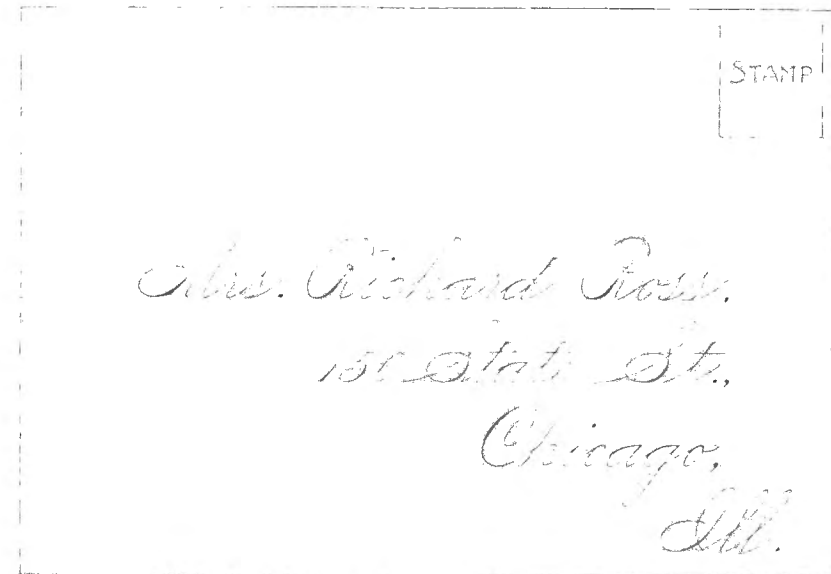 STAMP
Mrs. Richard Ross,
State St.,
Chicago,
Ill.